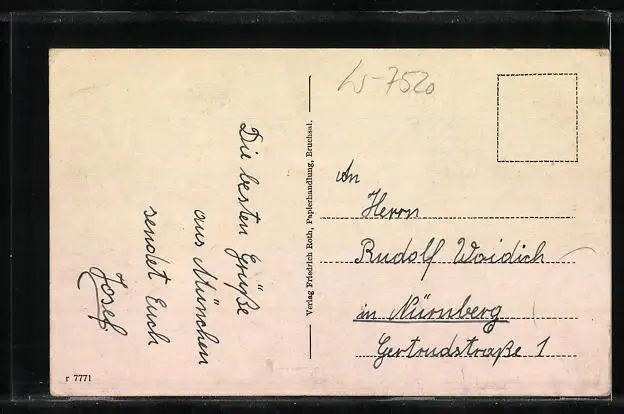 Die besten Grüße
aus München
sendet Euch
Josef
r 7771
Verlag Friedrich Roth, Papierhandlung, Bruchsal.
W-7520
An
Herrn
Rudolf Waidich
in Nürnberg
Gertrudstraße 1